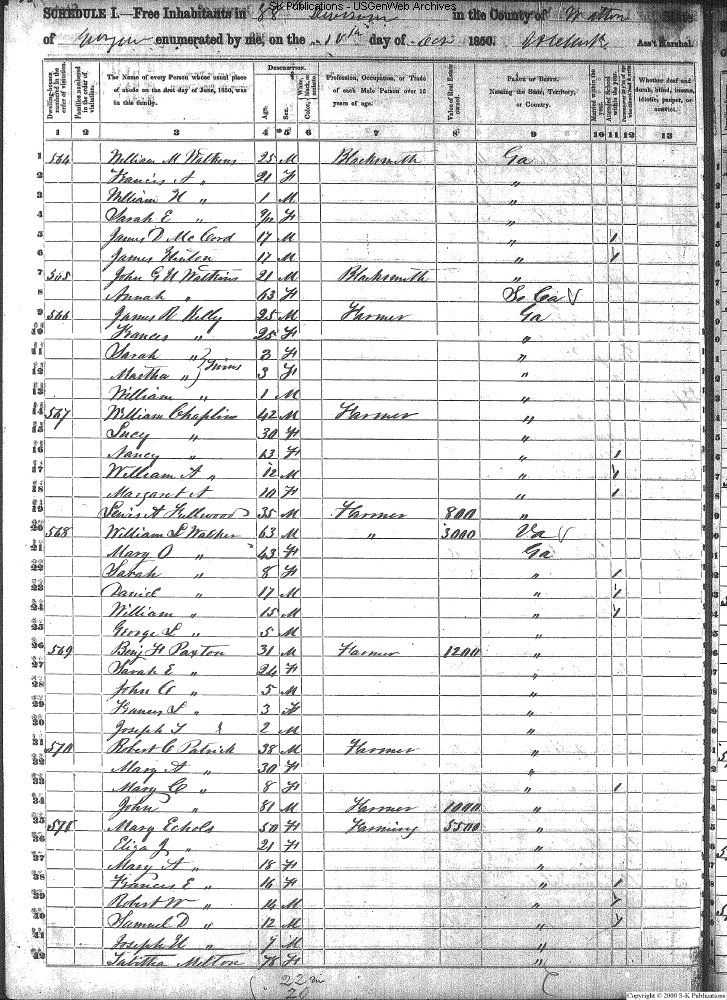 S-K Publications - USGenWeb Archives
SCHEDULE I.—Free Inhabitants in 88 Division in the County of Walton State
of Georgia enumerated by me, on the 10th day of Oct 1850. Ass't Marshal.
Dwelling-houses numbered in the order of visitation.
Families numbered in the order of visitation.
The Name of every Person whose usual place of abode on the first day of June, 1850, was in this family.
DESCRIPTION.
Age.
Sex.
Color, White, black, or mulatto.
Profession, Occupation, or Trade of each Male Person over 15 years of age.
Value of Real Estate owned.
PLACE OF BIRTH. Naming the State, Territory, or Country.
Married within the year.
Attended School within the year.
Whether deaf and dumb, blind, insane, idiotic, pauper, or convict.
1 2 3 4 5 6 7 8 9 10 11 12 13
1 564 William M Watkins 25 M Blacksmith Ga
2 Francis A " 21 F "
3 William H " 1 M "
4 Sarah E " F "
5 James D McCord 17 M " 1
6 James Hinton 17 M " 1
7 565 John G H Watkins 21 M Blacksmith "
8 Annah " 63 F So Ca
9 566 James R Kelly 25 M Farmer Ga
10 Frances " 25 F "
11 Sarah " } Twins 3 F "
12 Martha " } 3 F "
13 William " 1 M "
14 567 William Chaplins 42 M Farmer "
15 Lucy " 30 F "
16 Nancy " 13 F " 1
17 William A " 12 M " 1
18 Margaret A 10 F " 1
19 Lewis A Fullwood 35 M Farmer 800 "
20 568 William S Walker 63 M " 3000 Va
21 Mary O " 43 F Ga
22 Sarah " 8 F " 1
23 Daniel " 17 M " 1
24 William " 15 M " 1
25 George L " 5 M "
26 569 Benj F Paxton 31 M Farmer 1200 "
27 Sarah E " 24 F "
28 John C " 5 M "
29 Frances L " 3 F "
30 Joseph T 2 M "
31 570 Robert C Patrick 38 M Farmer "
32 Mary A " 30 F "
33 Mary C " 8 F " 1
34 John " 81 M Farmer 1000 "
35 571 Mary Echols 50 F Farming 5500 "
36 Eliza J " 21 F "
37 Mary A " 18 F "
38 Frances E " 16 F " 1
39 Robert W " 14 M " 1
40 Samuel D " 12 M " 1
41 Joseph H " 9 M "
42 Tabitha Melton 78 F "
22 m
20
Copyright © 2000 S-K Publications